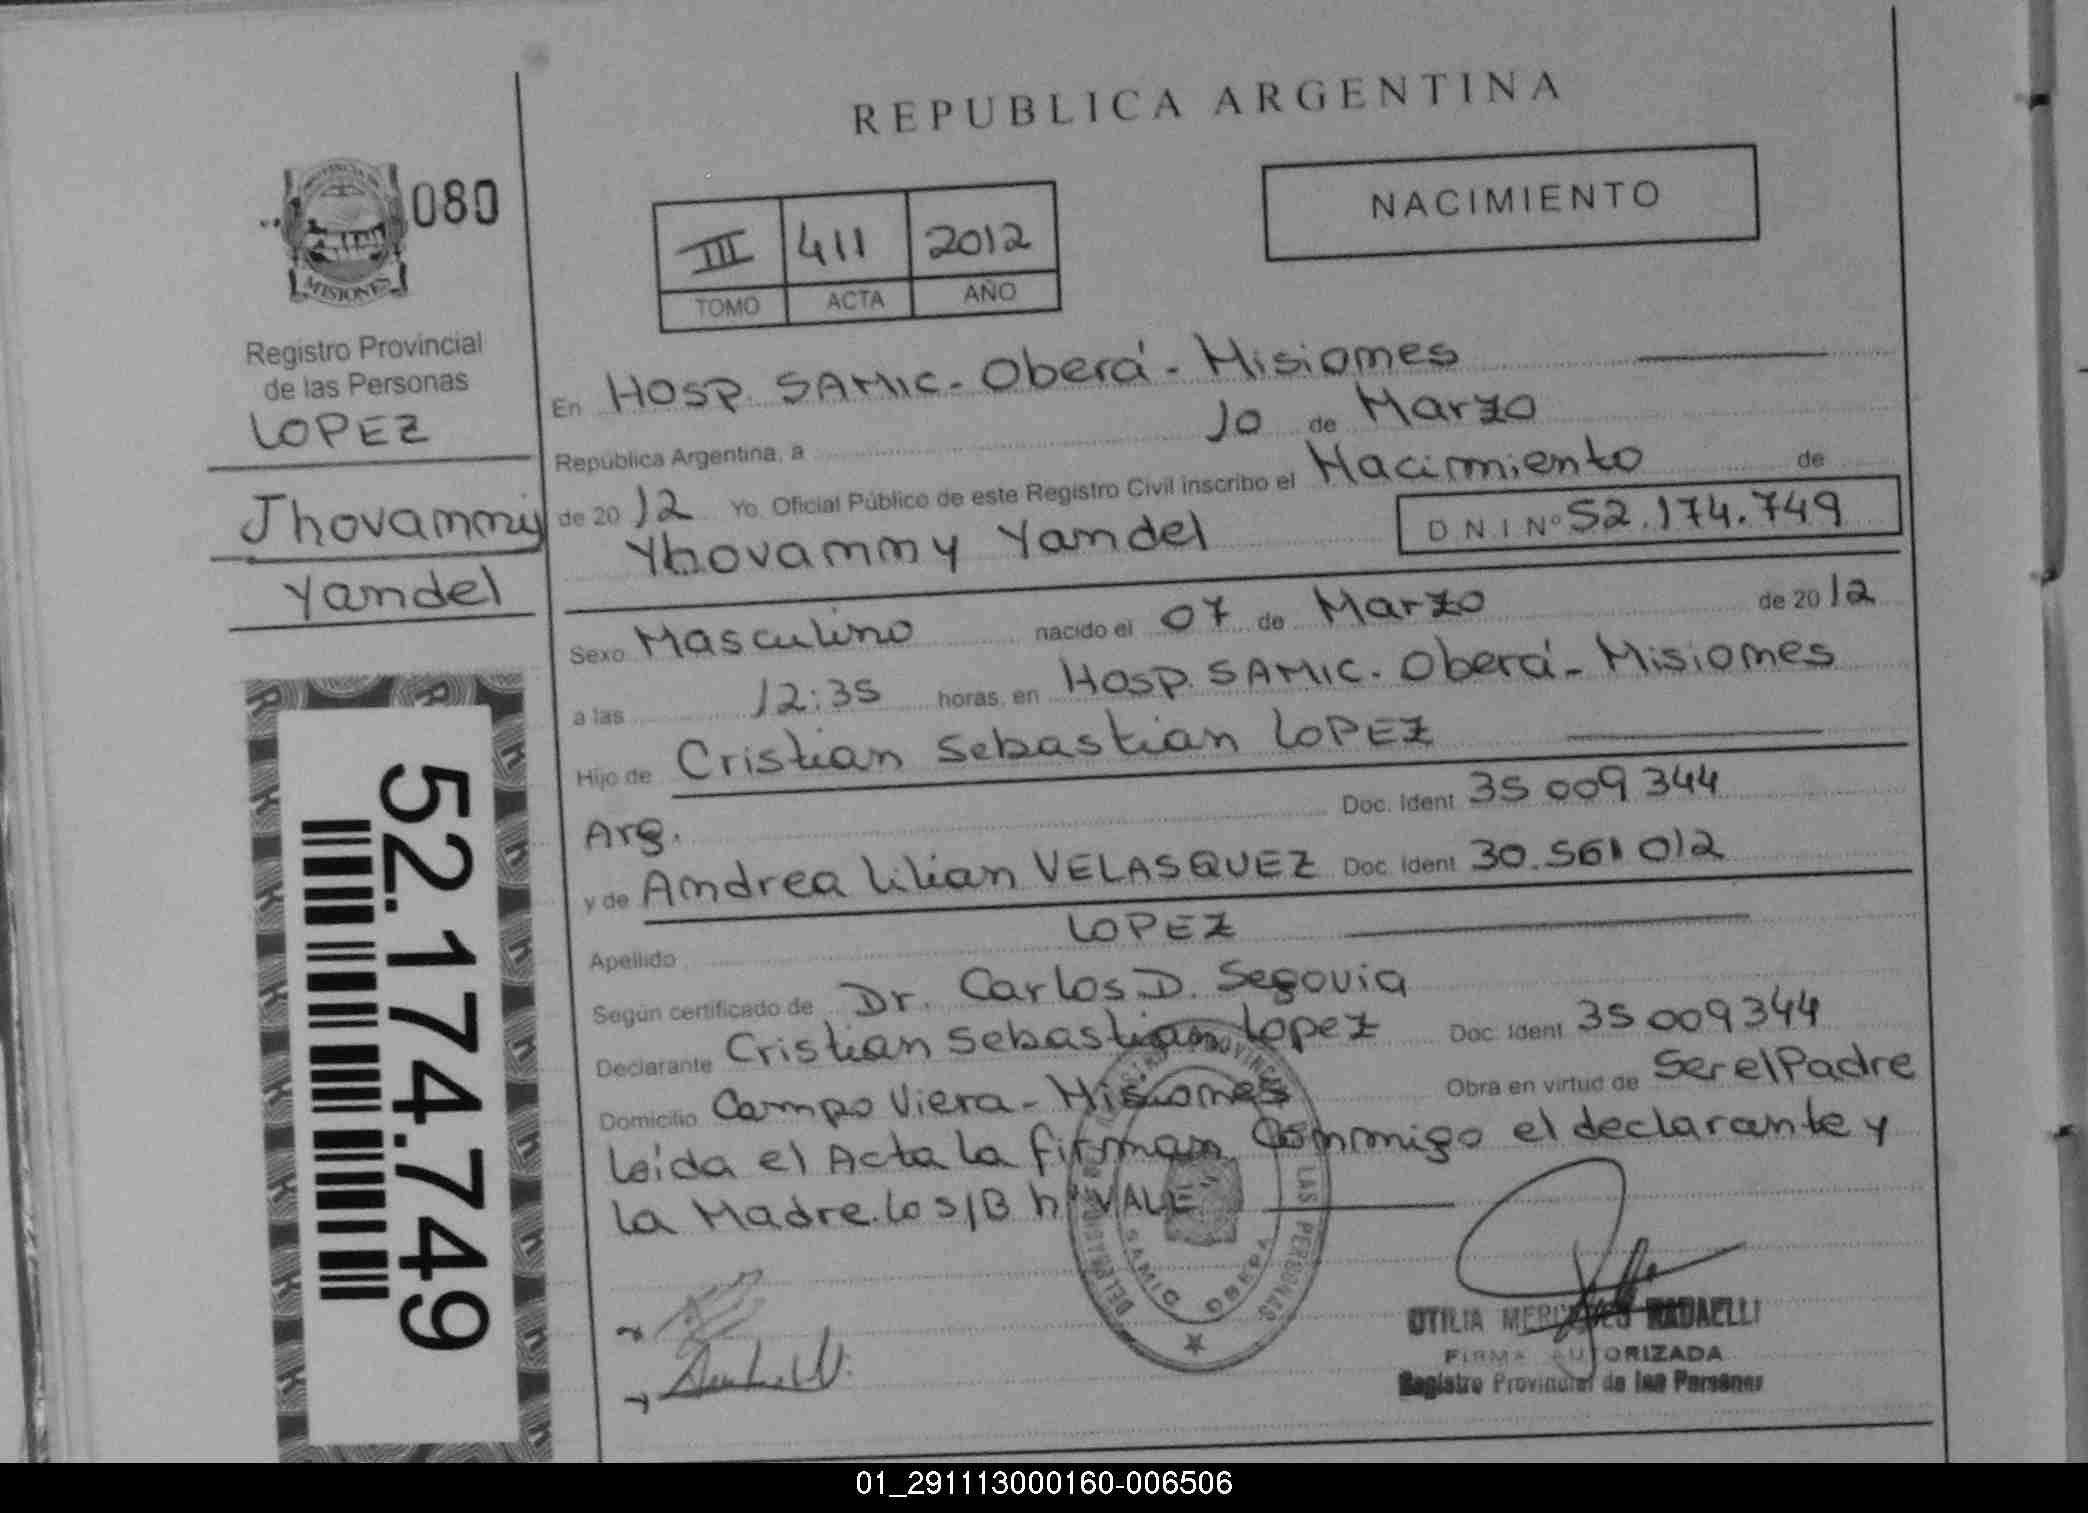 REPUBLICA ARGENTINA
NACIMIENTO
080
MISIONES
III 411 2012
TOMO ACTA AÑO
Registro Provincial
de las Personas
LOPEZ
Jhovanny
Yandel
52.174.749
En Hosp. SAMIC - Oberá - Misiones
República Argentina, a 10 de Marzo
de 2012 Yo, Oficial Público de este Registro Civil inscribo el Nacimiento de
Yhovanny Yandel D N I Nº 52.174.749
Sexo Masculino nacido el 07 de Marzo de 2012
a las 12:35 horas, en Hosp. SAMIC - Oberá - Misiones
Hijo de Cristian Sebastian LOPEZ
Arg. Doc. Ident 35 009 344
y de Andrea Lilian VELASQUEZ Doc. Ident 30.561 012
Apellido LOPEZ
Según certificado de Dr. Carlos D. Segovia
Declarante Cristian Sebastian Lopez Doc. Ident 35 009 344
Domicilio Campo Viera - Misiones Obra en virtud de Ser el Padre
Leída el Acta la firman Conmigo el declarante y
la Madre. Lo s/B VALE
LAS PERSONAS
SAMIC OBERA
OTILIA MERCEDES RADAELLI
FIRMA AUTORIZADA
Registro Provincial de las Personas
01_291113000160-006506